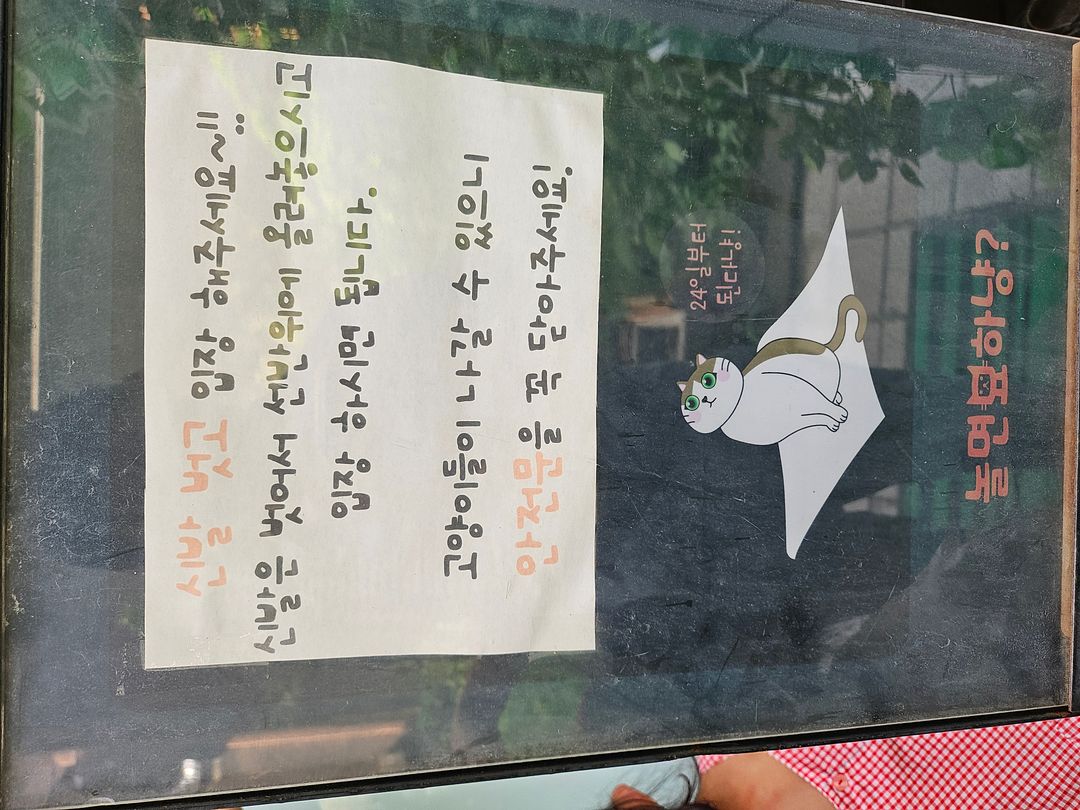 신발 벗고 입장 해주세요~!!
신발은 벗어서 선반위에 올려놓으시고
입장 하시면 됩니다.
고양이들이 나갈 수 있으니
안전문을 꼭 닫아주세요!
24일부터
된다냥!
놀면묘하냥?